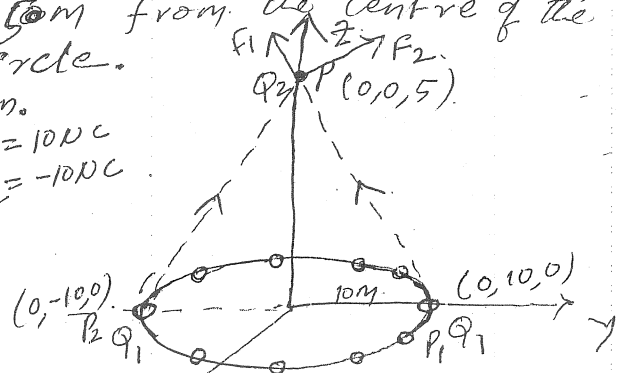 50m from the centre of the
rcle.
n.
= 10NC
= -10NC
F1 Z F2.
Q2 P (0,0,5).
(0,-10,0) 10M. (0,10,0)
P2 Q1 P1 Q1 y